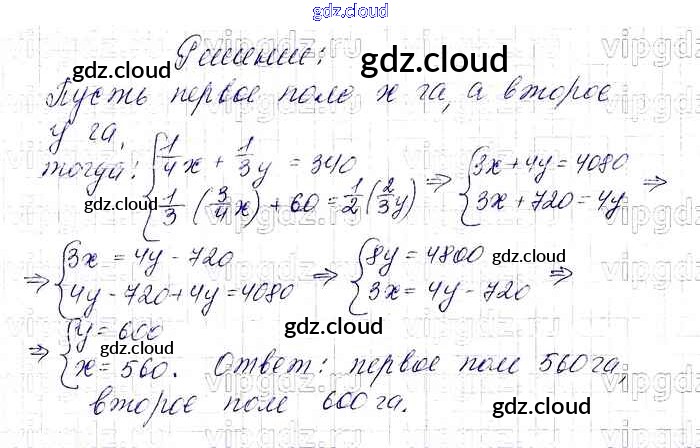 gdz.cloud
Решение:
gdz.cloud gdz.cloud
Пусть первое поле x га, а второе
y га,
тогда: { 1/4 x + 1/3 y = 340 ; 1/3 (3/4 x) + 60 = 1/2 (2/3 y) ⇒ { 3x + 4y = 4080 ; 3x + 720 = 4y ⇒
gdz.cloud gdz.cloud
⇒ { 3x = 4y - 720 ; 4y - 720 + 4y = 4080 ⇒ { 8y = 4800 ; 3x = 4y - 720 ⇒
gdz.cloud
gdz.cloud
⇒ { y = 600 ; x = 560. Ответ: первое поле 560 га,
gdz.cloud
второе поле 600 га.
gdz.cloud
vipgdz.ru